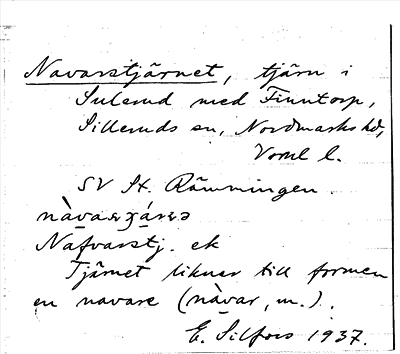 Navarstjärnet, tjärn i
Sulerud med Finntorp,
Silleruds sn, Nordmarks hd,
Värml l.
SV St. Rämningen.
Nafvarstj. ek
Tjärnet liknar till formen
en navare (nàvar, m.).
E. Silfors 1937.